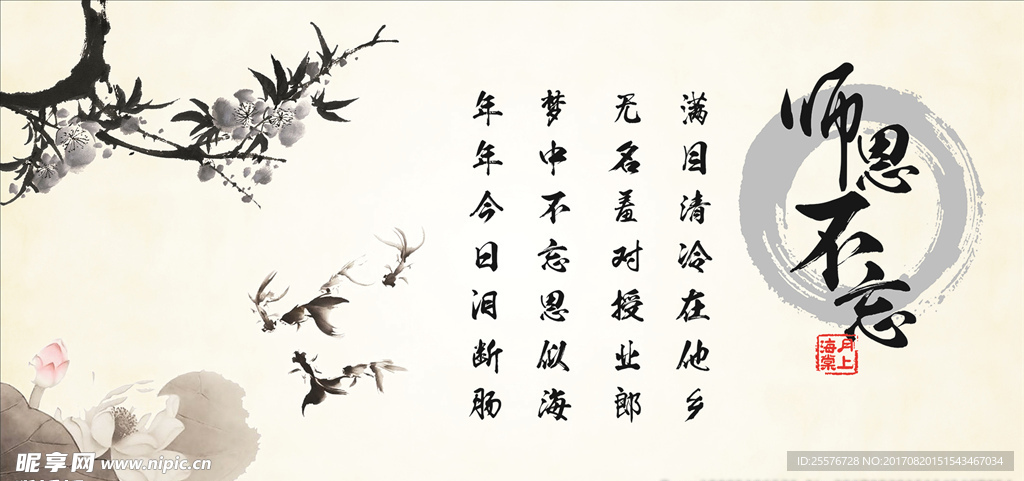 师恩不忘
月上海棠
满目清冷在他乡
无名羞对授业郎
梦中不忘恩似海
年年今日泪断肠
昵享网 www.nipic.cn
ID:25576728 NO:20170820151543467034